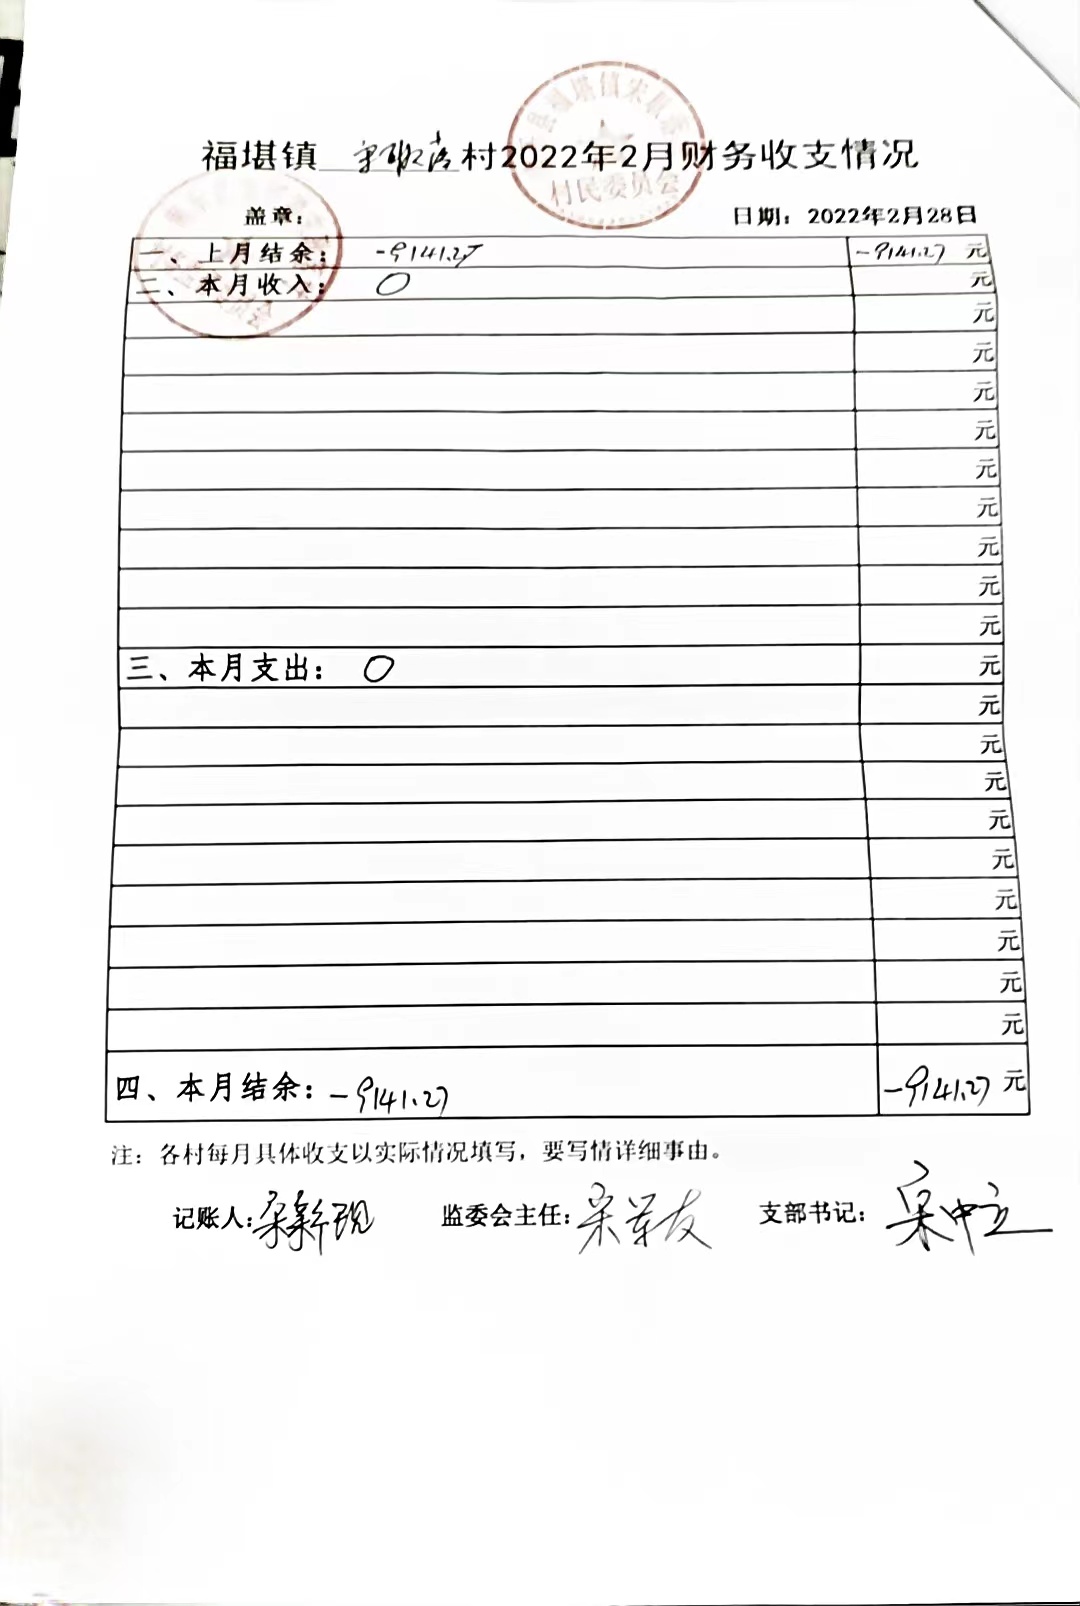 福堪镇 宋耿落村2022年2月财务收支情况
村民委员会
盖章： 日期：2022年2月28日
一、上月结余： -9141.27 -9141.27 元
二、本月收入： 0 元
元
元
元
元
元
元
元
元
元
三、本月支出： 0 元
元
元
元
元
元
元
元
元
元
四、本月结余：-9141.27 -9141.27 元
注：各村每月具体收支以实际情况填写，要写情详细事由。
记账人： 监委会主任：宋军友 支部书记：宋中立